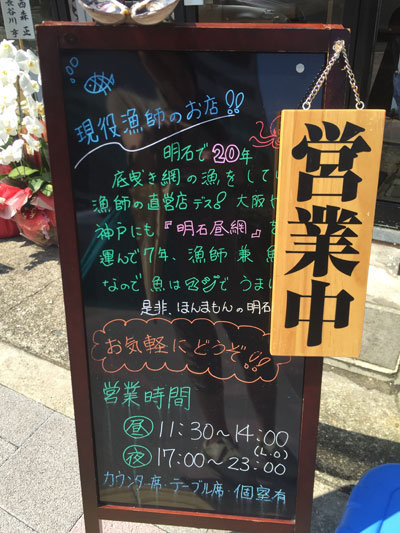 現役漁師のお店!!
明石で20年
底曳き網の漁をして
漁師の直営店デス! 大阪
神戸にも、『明石昼網』
運んで7年、漁師兼
なので魚はマジでうま
是非、ほんまもんの明石
お気軽にどうぞ!!
営業時間
昼 11:30〜14:00
(L.O)
夜 17:00〜23:00
カウンター席・テーブル席・個室有
営業中